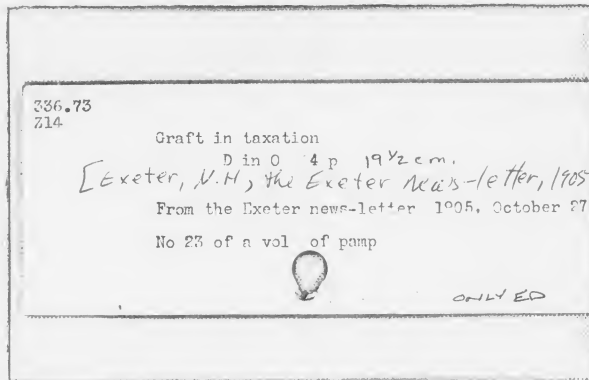 336.73
Z14
Graft in taxation
D in O 4 p 19 1/2 cm.
[Exeter, N.H, the Exeter news-letter, 1905
From the Exeter news-letter 1905, October 27
No 23 of a vol of pamp
ONLY ED